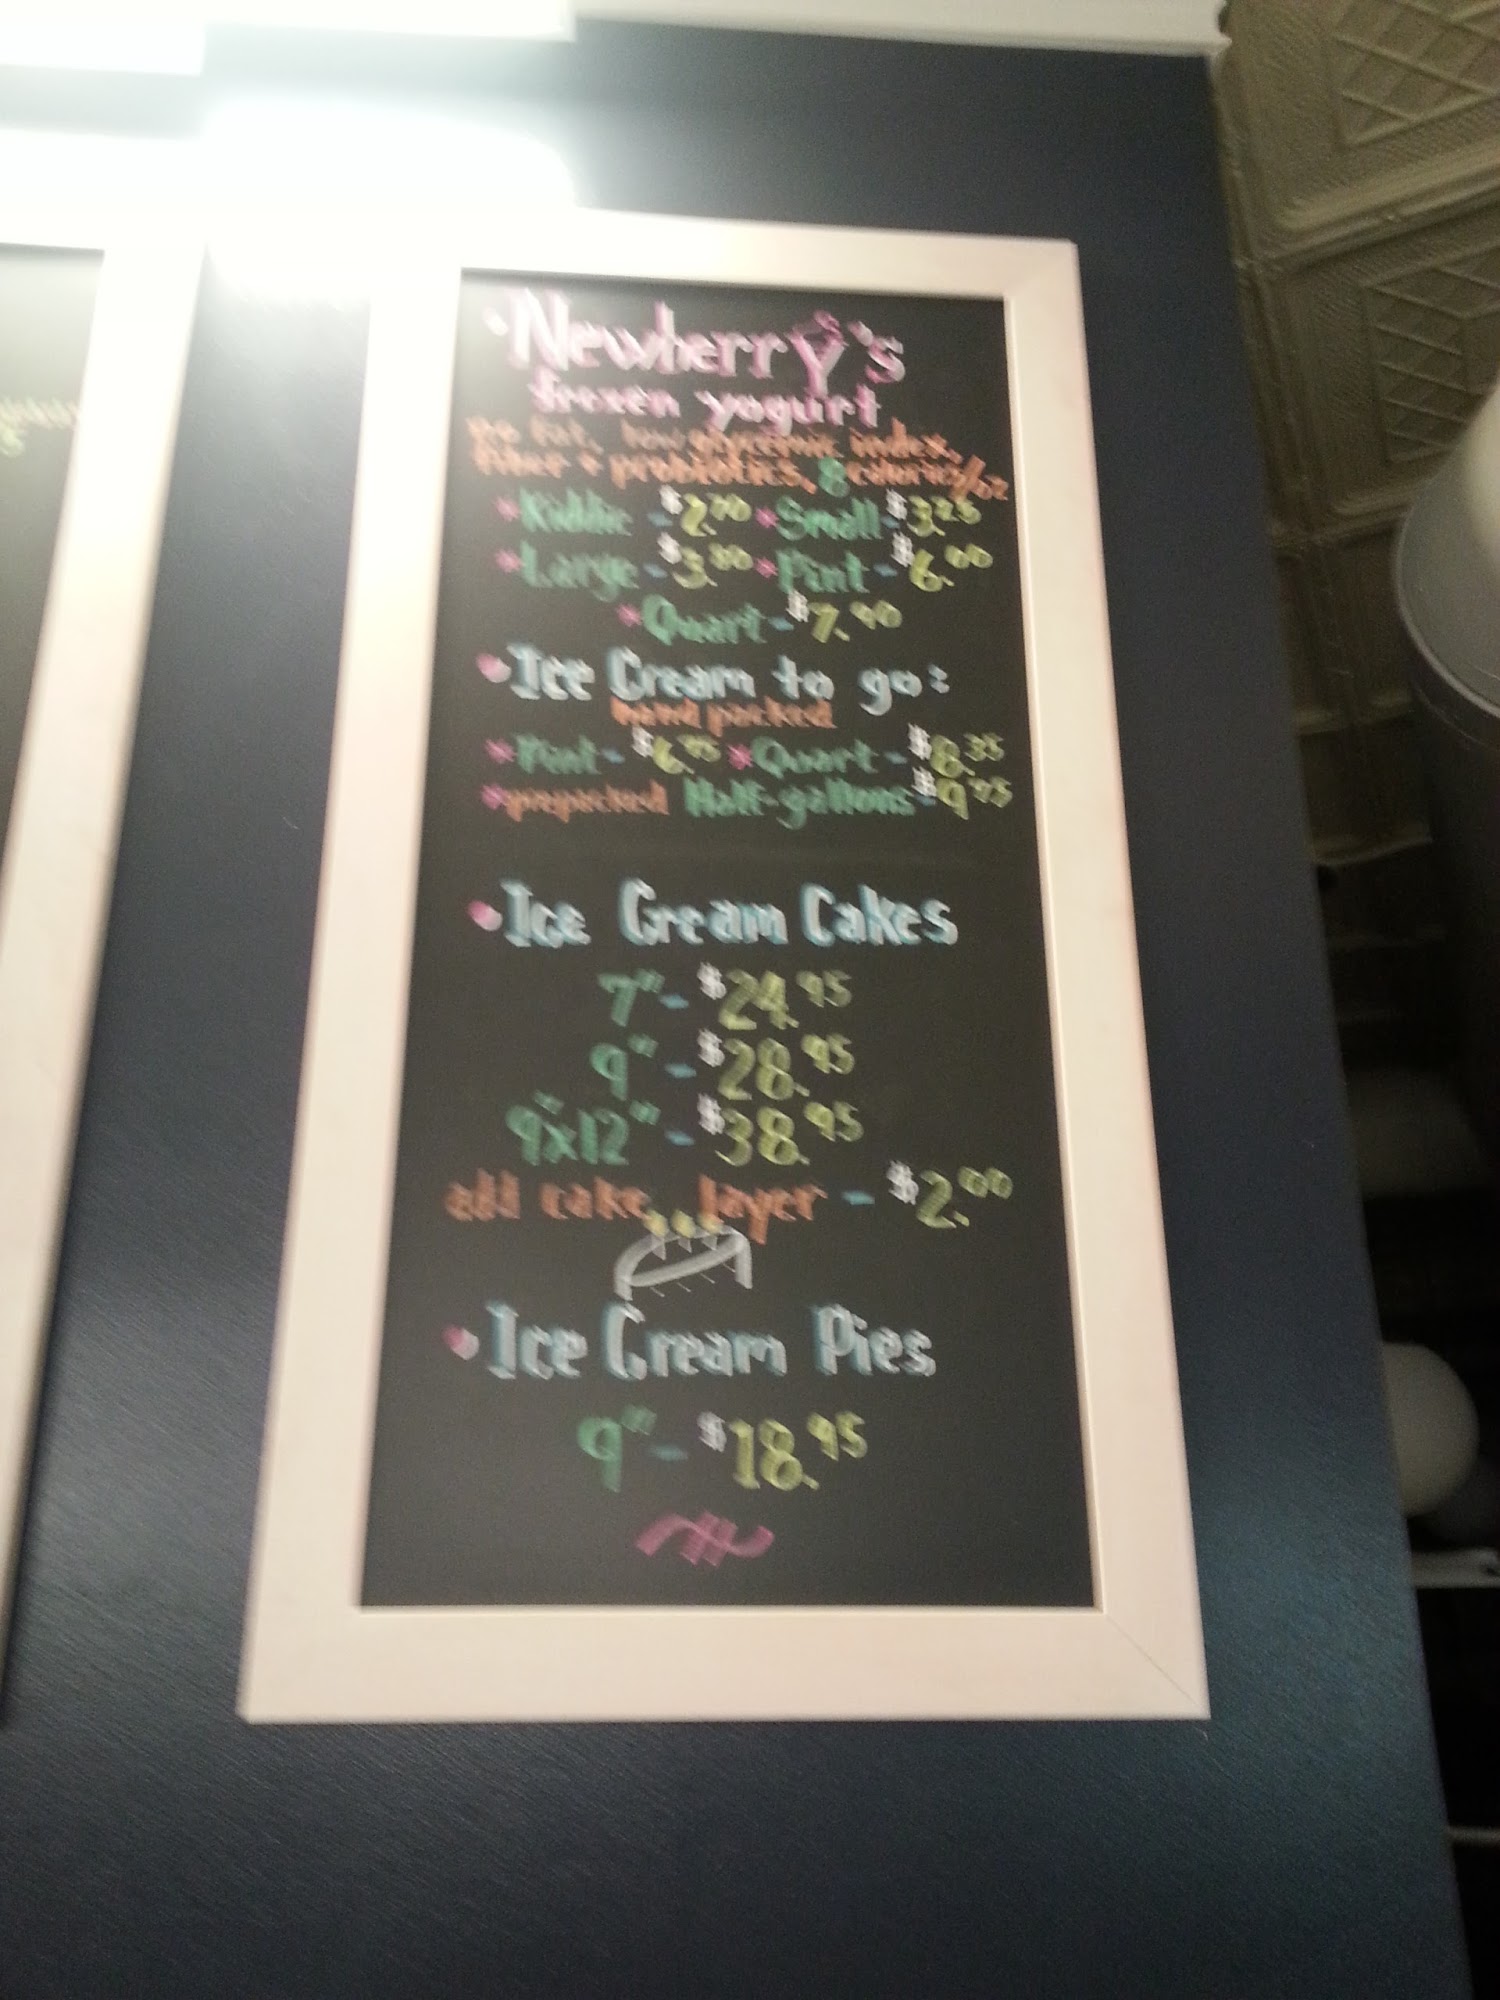 Newberry's
frozen yogurt
No fat, low glycemic index,
fiber + probiotics, 8 calories/oz
*Kiddie - $2.70 *Small - $3.25
*Large - $3.80 *Pint - $6.00
*Quart - $7.90
Ice Cream to go:
hand packed
*Pint - $6.45 *Quart - $8.35
*prepacked Half-gallons - $9.75
Ice Cream Cakes
7" - $24.95
9" - $28.95
9x12" - $38.95
add cake layer - $2.00
Ice Cream Pies
9" - $18.95